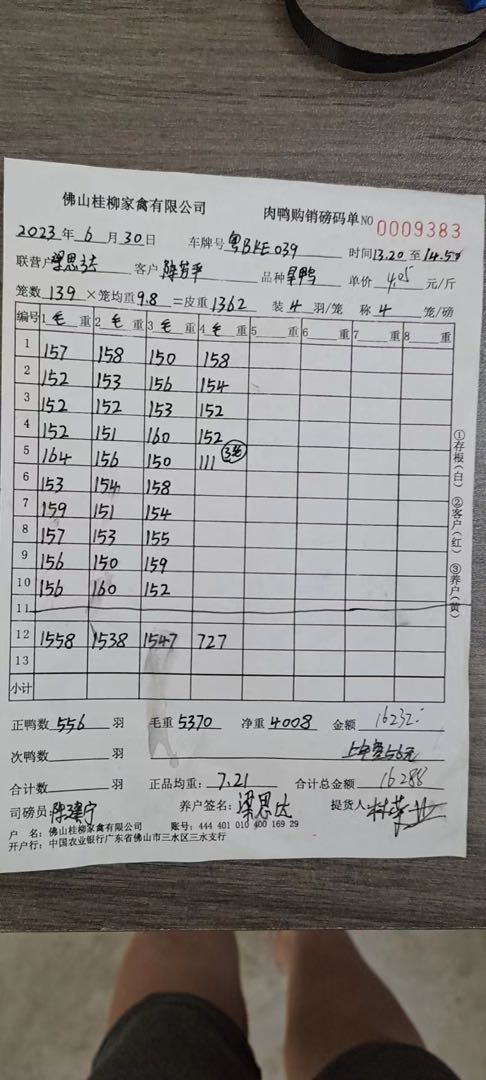 佛山桂柳家禽有限公司 肉鸭购销磅码单 NO 0009383
2023 年 6 月 30 日 车牌号 粤BKE039 时间 13.20 至 14.5
联营户 梁思达 客户 品种 旱鸭 单价 4.05 元/斤
笼数 139 ×笼均重 9.8 =皮重 1362 装 4 羽/笼 称 4 笼/磅
编号 1 毛 重 2 毛 重 3 毛 重 4 毛 重 5 重 6 重 7 重 8 重
1 157 158 150 158
2 152 153 156 154
3 152 152 153 152
4 152 151 160 152
5 164 156 150 111 3笼
6 153 154 158
7 159 151 154
8 157 153 155
9 156 150 159
10 156 160 152
11
12 1558 1538 1547 727
13
小计
①存根(白) ②客户(红) ③养户(黄)
正鸭数 556 羽 毛重 5370 净重 4008 金额 16232
次鸭数 羽 上车费56元
合计数 羽 正品均重: 7.21 合计总金额 16288
司磅员: 养户签名: 梁思达 提货人:
户 名: 佛山桂柳家禽有限公司 账号: 444 401 010 400 169 29
开户行: 中国农业银行广东省佛山市三水区三水支行